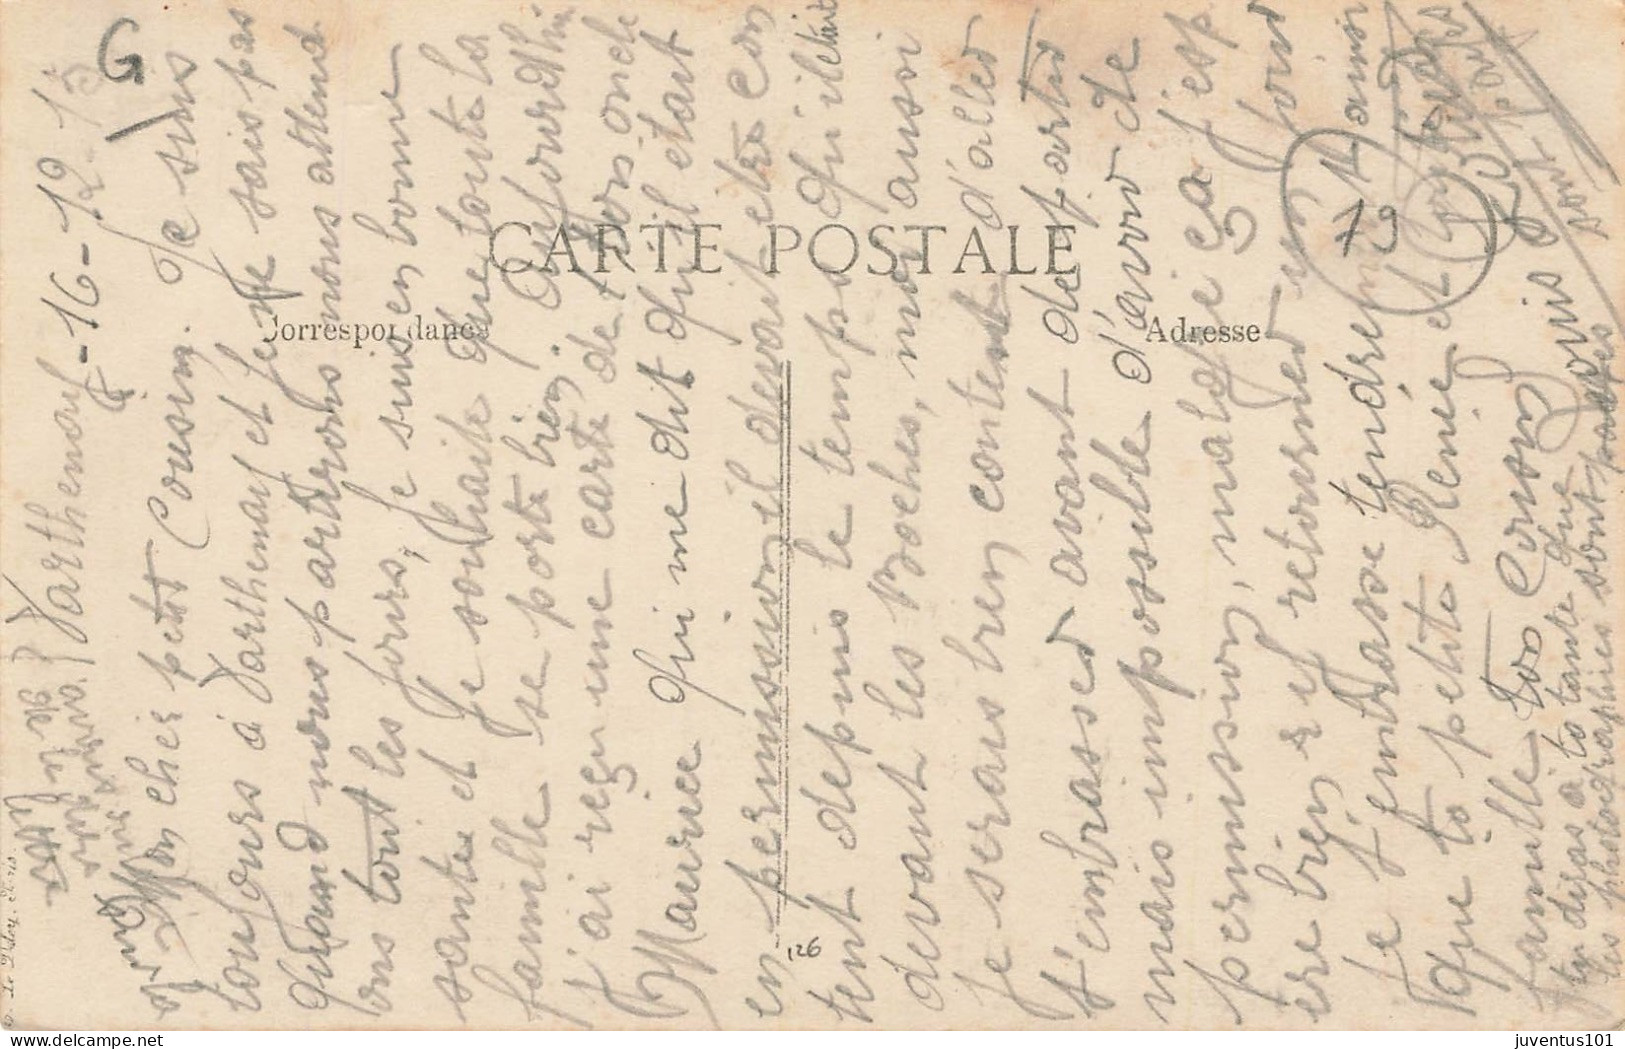 Parthenay - 16-12-15
Mon cher petit Cousin. Je suis
toujours à Parthenay et je ne sais pas
quand nous partirons nous attend
ons tout les jours, je suis en bonne
santée et je souhaite que toute la
famille se porte bien. Aujourd'hui
j'ai reçu une carte de ton oncle
Maurice qui me dit qu'il était
en permission il devait être con
tent depuis le temps qu'il était
devant les Boches, moi aussi
je serais bien content d'aller
t'embrasser avant de partir
mais impossible d'avoir de
permission, malgré ça j'esp
ère bien y retourner un jour
Je t'embrasse tendrement ainsi
que ta petite Renée et toute la
famille Ton Cousin Louis
tu diras à ta tante que
les photographies sont
CARTE POSTALE
Correspondance
Adresse
G
79
126
juventus101